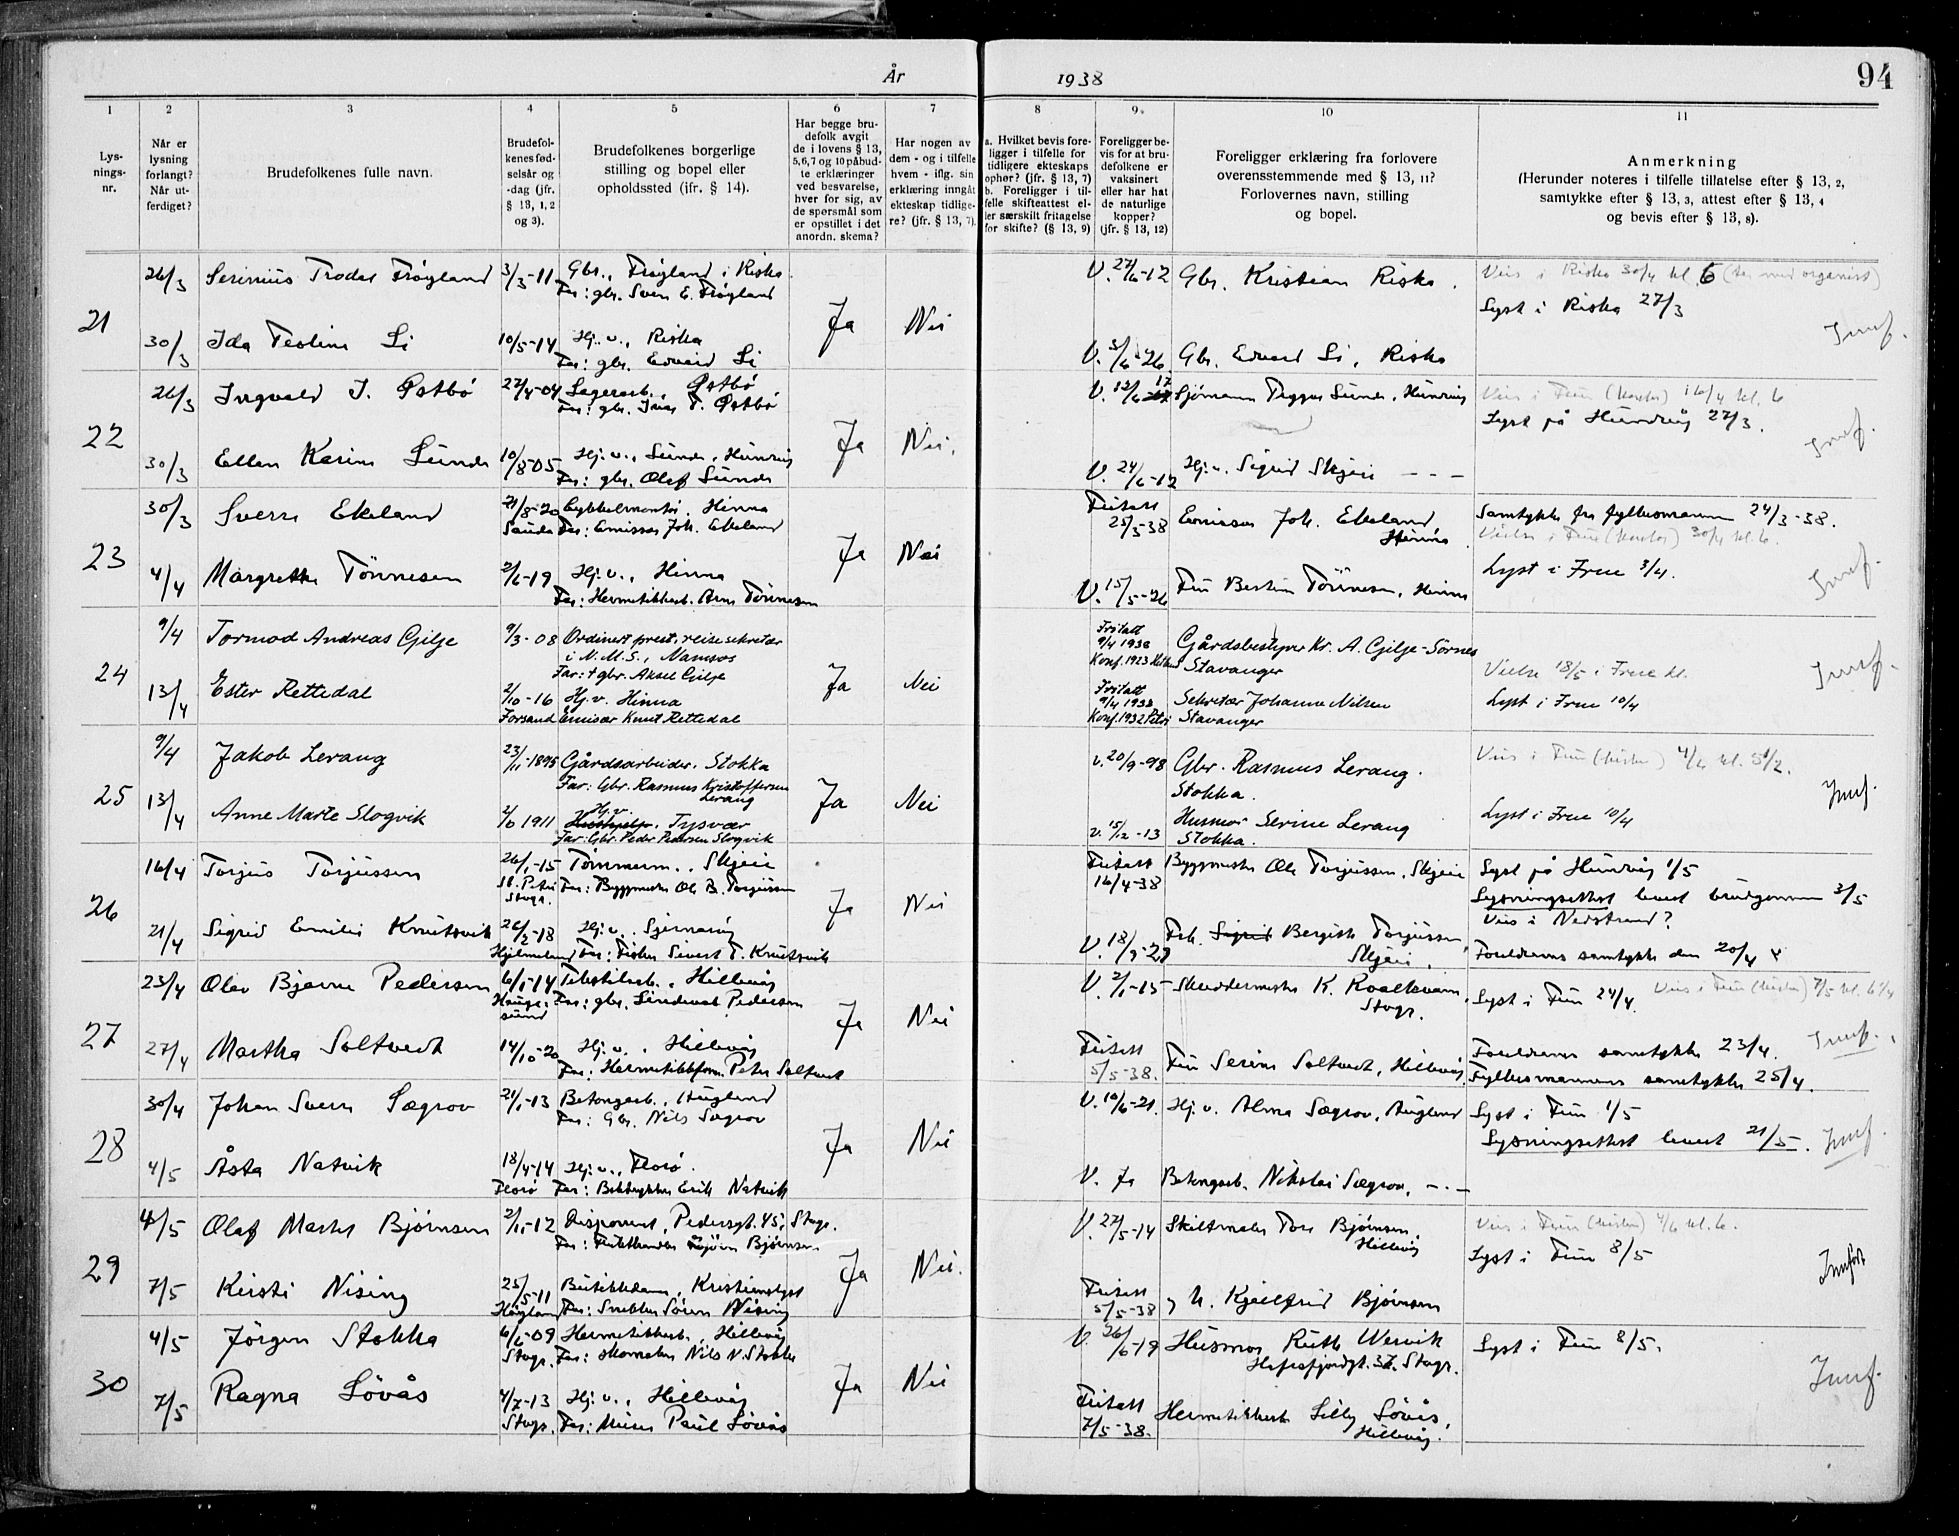 År 1938
94
1
2
3
4
5
6
7
8
9
10
11
Lys-
nings-
nr.
Når er
lysning
forlangt?
Når ut-
ferdiget?
Brudefolkenes fulle navn.
Brudefol-
kenes fød-
selsår og
-dag (jfr.
§ 13, 1, 2
og 3).
Brudefolkenes borgerlige
stilling og bopel eller
opholdssted (jfr. § 14).
Har begge bru-
defolk avgit
de i lovens § 13,
5,6,7 og 10 påbud-
te erklæringer
ved besvarelse,
hver for sig, av
de spørsmål som
er opstillet i det
anordn. skema?
Har nogen av
dem - og i tilfelle
hvem - iflg. sin
erklæring inngått
ekteskap tidlige-
re? (jfr. § 13, 7).
a. Hvilket bevis fore-
ligger i tilfelle for
tidligere ekteskaps
ophør? (jfr. § 13, 7)
b. Foreligger i til-
felle skifteattest el-
ler særskilt fritagelse
for skifte? (§ 13, 9)
Foreligger be-
vis for at bru-
defolkene er
vaksinert
eller har hat
de naturlige
kopper?
(jfr. § 13, 12)
Foreligger erklæring fra forlovere
overensstemmende med § 13, 11?
Forlovernes navn, stilling
og bopel.
Anmerkning
(Herunder noteres i tilfelle tillatelse efter § 13, 2,
samtykke efter § 13, 3, attest efter § 13, 4
og bevis efter § 13, 8).
21
26/3 Serinius Trodal Frøyland 3/3-11 Gbr., Frøyland i Riska.
Far: gbr. Sven E. Frøyland
Ja Nei
V. 27/6-12 Gbr. Kristian Riska.
Vies i Riska 30/4 kl. 6
Lyst i Riska 27/3
30/3 Ida Teoline Li 10/5-14 Hj.v., Riska
Far: gbr. Edvard Li
Gbr. Edvard Li, Riska
Innf.
22
26/3 Ingvald I. Østbö 27/4-04 Lagerarb., Østbö
Far: gbr. Ivar T. Østbö
Ja Nei.
Sjömann Trygve Sunde, Hundvåg
Lyst på Hundvåg 27/3.
30/3 Ellen Karine Sunde 10/8-05 Hj.v., Sunde, Hundvåg
Far: gbr. Olaf Sunde
V. 24/6-12 Hj.v. Sigrid Skjeie - - -
Innf.
23
30/3 Sverre Ekeland 21/8-20 Hinna
Sauda Far: Emissær Joh. Ekeland
Ja Nei
Fritatt 25/3-38 Emissær Joh. Ekeland, Hinna.
Samtykke fra fylkesmannen 24/3-38.
4/4 Margrethe Tönnesen 2/6-19 Hj.v., Hinna
Far: Hermetikkarb. Arne Tönnesen
V. 15/5-26 Fru Tönnesen, Hinna
Lyst i Frue 3/4.
Innf.
24
9/4 Tormod Andreas Gilje 9/3-08 Ordinert prest, reisesekretær
i N.M.S., Namsos
Far: † gbr. Aksel Gilje
Ja Nei
Fritatt 9/4 1938 Gårdsbestyrer Kr. A. Gilje-Sörnes
Konf. 1923 Stavanger
Vielse 18/5 i Frue kl.
13/4 Ester Rettedal 2/10-16 Hj.v. Hinna
Forsand Emissær Knut Rettedal
Fritatt 9/4 1938 Sekretær Johanne Nilsen
Konf. 1932 Petri Stavanger
Lyst i Frue 10/4
Innf.
25
9/4 Jakob Lerang 23/11-1895 Gårdsarbeider. Stokka
Far: Gbr. Rasmus Kristoffersen
Lerang
Ja Nei
v. 20/9-98 Gbr. Rasmus Lerang.
Stokka.
13/4 Anne Marte Slogvik 1911 Hj.v. Tysvær
Far: Gbr. Peder Pedersen Slogvik
v. 15/12-13 Husmor Serine Lerang
Stokka.
Lyst i Frue 10/4
Innf.
26
16/4 Torjus Torjussen 26/1-15 Tömmerm., Skjeie
St. Petri Stvgr. Far: Byggmester Ole B. Torjussen
Ja Nei
Fritatt 16/4-38 Byggmester Ole Torjussen, Skjeie
Lyst på Hundvåg 1/5
Lysningsattest levert brudgommen 3/5
Vies i Nedstrand?
21/4 Sigrid Emilie Knutsvik 26/2-18 Hj.v., Sjernaröy
Hjelmeland Far: Fisker Sivert T. Knutsvik
Frk. Sigrid Bergith Torjussen,
Skjeie.
Foreldrenes samtykke den 20/4
27
23/4 Olav Bjarne Pedersen 6/1-14 Tekstilarb., Hillevåg
Haugesund Far: gbr. Sindevat Pedersen
Ja Nei
V. 2/1-15 Skreddermester K. Roalkvam,
Stvgr.
Lyst i Frue 24/4.
27/4 Martha Soltvedt 14/10-20 Hj.v., Hillevåg
Far: Hermetikkform. Peter Soltvedt
Fritatt 5/5-38. Fru Serine Soltvedt, Hillevåg
Foreldrenes samtykke 23/4.
Fylkesmannens samtykke 25/4.
Innf.
28
30/4 Johan Sverre Sægrov 21/1-13 Betongarb., Auglend
Far: Gbr. Nils Sægrov
Ja Nei
V. 10/6-21. Hj.v. Alma Sægrov, Auglend
Lyst i Frue 1/5
Lysningsattest levert 21/5.
4/5 Åsta Natvik 18/4-14 Hj.v., Florö.
Florö Far: Erik Natvik
V. Ja Betongarb. Nikolai Sægrov, - . -
Innf.
29
4/5 Olaf Martin Bjørnsen 2/1-12 Disponent, Pedersgt. 45, Stvgr.
Ja Nei.
V. 27/5-14 Skiltmaler Tore Bjørnsen,
Hillevåg
Lyst i Frue 8/5
7/5 Kirsti Nising 25/5-11 Butikkdame, Kristianslyst
Höyland Far: Snekker Sören Nising
Fritatt 5/5-38 Kjellfrid Bjørnsen
Innført
30
4/5 Jörgen Stokka 6/6-09 Hermetikkarb., Hillevåg
Stvgr. Far: skomaker Nils N. Stokka
Ja Nei
V. 26/6-19 Husmor Ruth Wervik
Hafrsfjordgt. Stvgr.
Lyst i Frue 8/5.
7/5 Ragna Lövås 4/7-13 Hj.v., Hillevåg
Stvgr. Far: Murer Paul Lövås
Fritatt 7/5-38. Hermetikkarb. Lilly Lövås,
Hillevåg.
Innf.